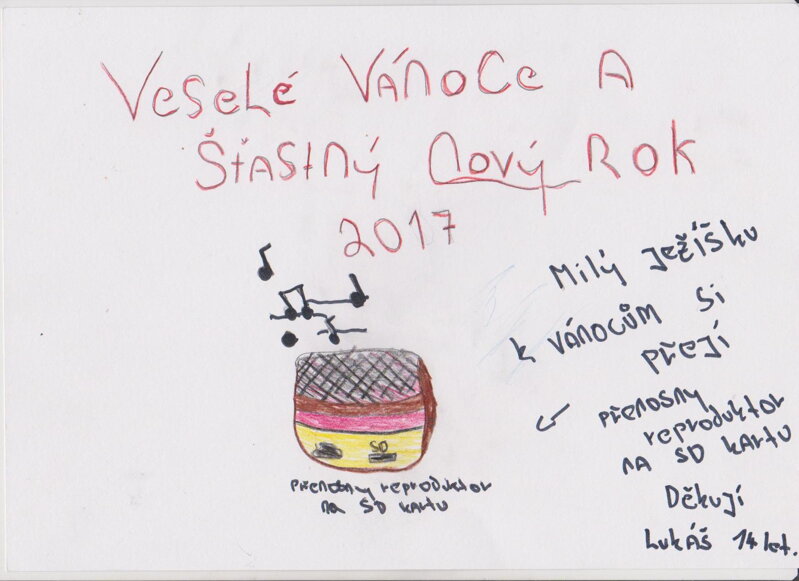 Veselé Vánoce a
Šťastný Nový Rok
2017
Milý Ježíšku
k Vánocům si
přejí
přenosny
reproduktor
na SD kartu
Děkují
Lukáš 14 let.
SD
přenosny reproduktor
na SD kartu